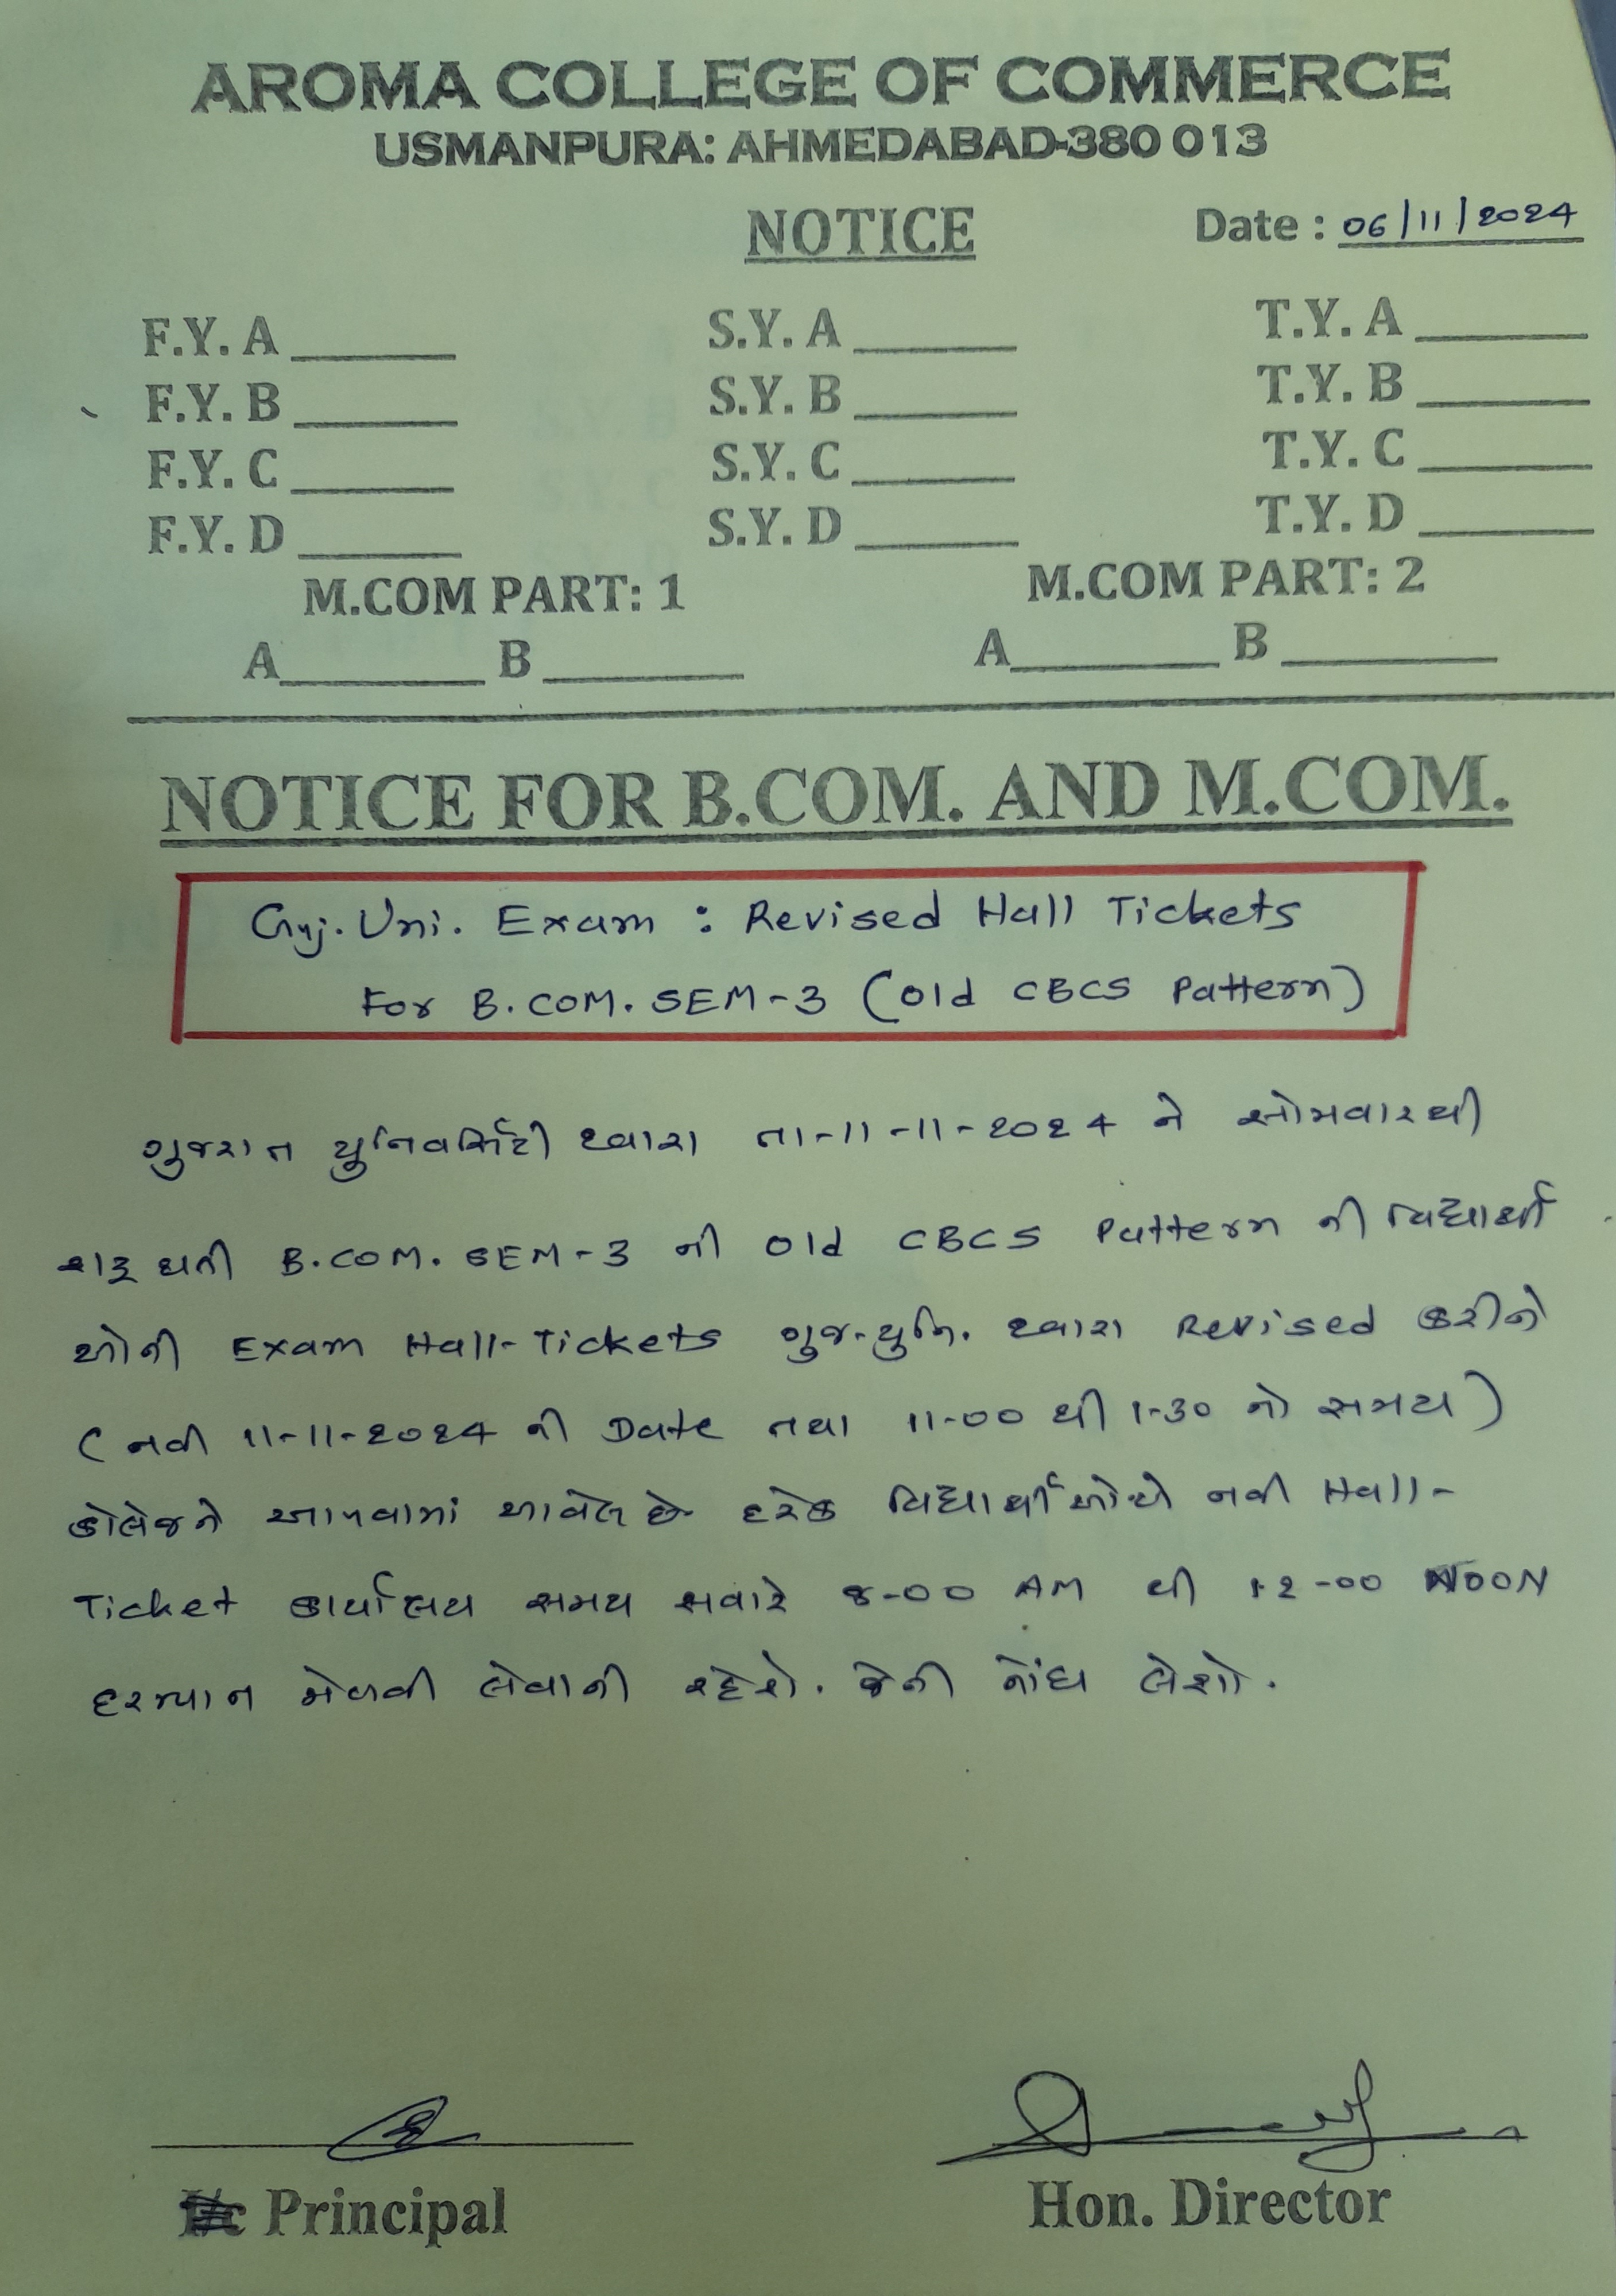 AROMA COLLEGE OF COMMERCE
USMANPURA: AHMEDABAD-380 013
NOTICE Date : 06/11/2024
F.Y. A ______ S.Y. A ______ T.Y. A ______
F.Y. B ______ S.Y. B ______ T.Y. B ______
F.Y. C ______ S.Y. C ______ T.Y. C ______
F.Y. D ______ S.Y. D ______ T.Y. D ______
M.COM PART: 1 M.COM PART: 2
A______ B______ A______ B______
NOTICE FOR B.COM. AND M.COM.
Guj. Uni. Exam : Revised Hall Tickets
For B.COM. SEM-3 (Old CBCS Pattern)
ગુજરાત યુનિવર્સિટી દ્વારા તા-11-11-2024 ને સોમવારથી
શરૂ થતી B.COM. SEM-3 ની Old CBCS Pattern ની વિદ્યાર્થી
ઓની Exam Hall-Tickets ગુજ.યુનિ. દ્વારા Revised કરીને
(નવી 11-11-2024 ની Date તથા 11-00 થી 1-30 નો સમય)
કોલેજને આપવામાં આવેલ છે દરેક વિદ્યાર્થીઓએ નવી Hall-
Ticket કાર્યાલય સમય સવારે 8-00 AM થી 12-00 NOON
દરમ્યાન મેળવી લેવાની રહેશે. જેની નોંધ લેશો.
Principal Hon. Director